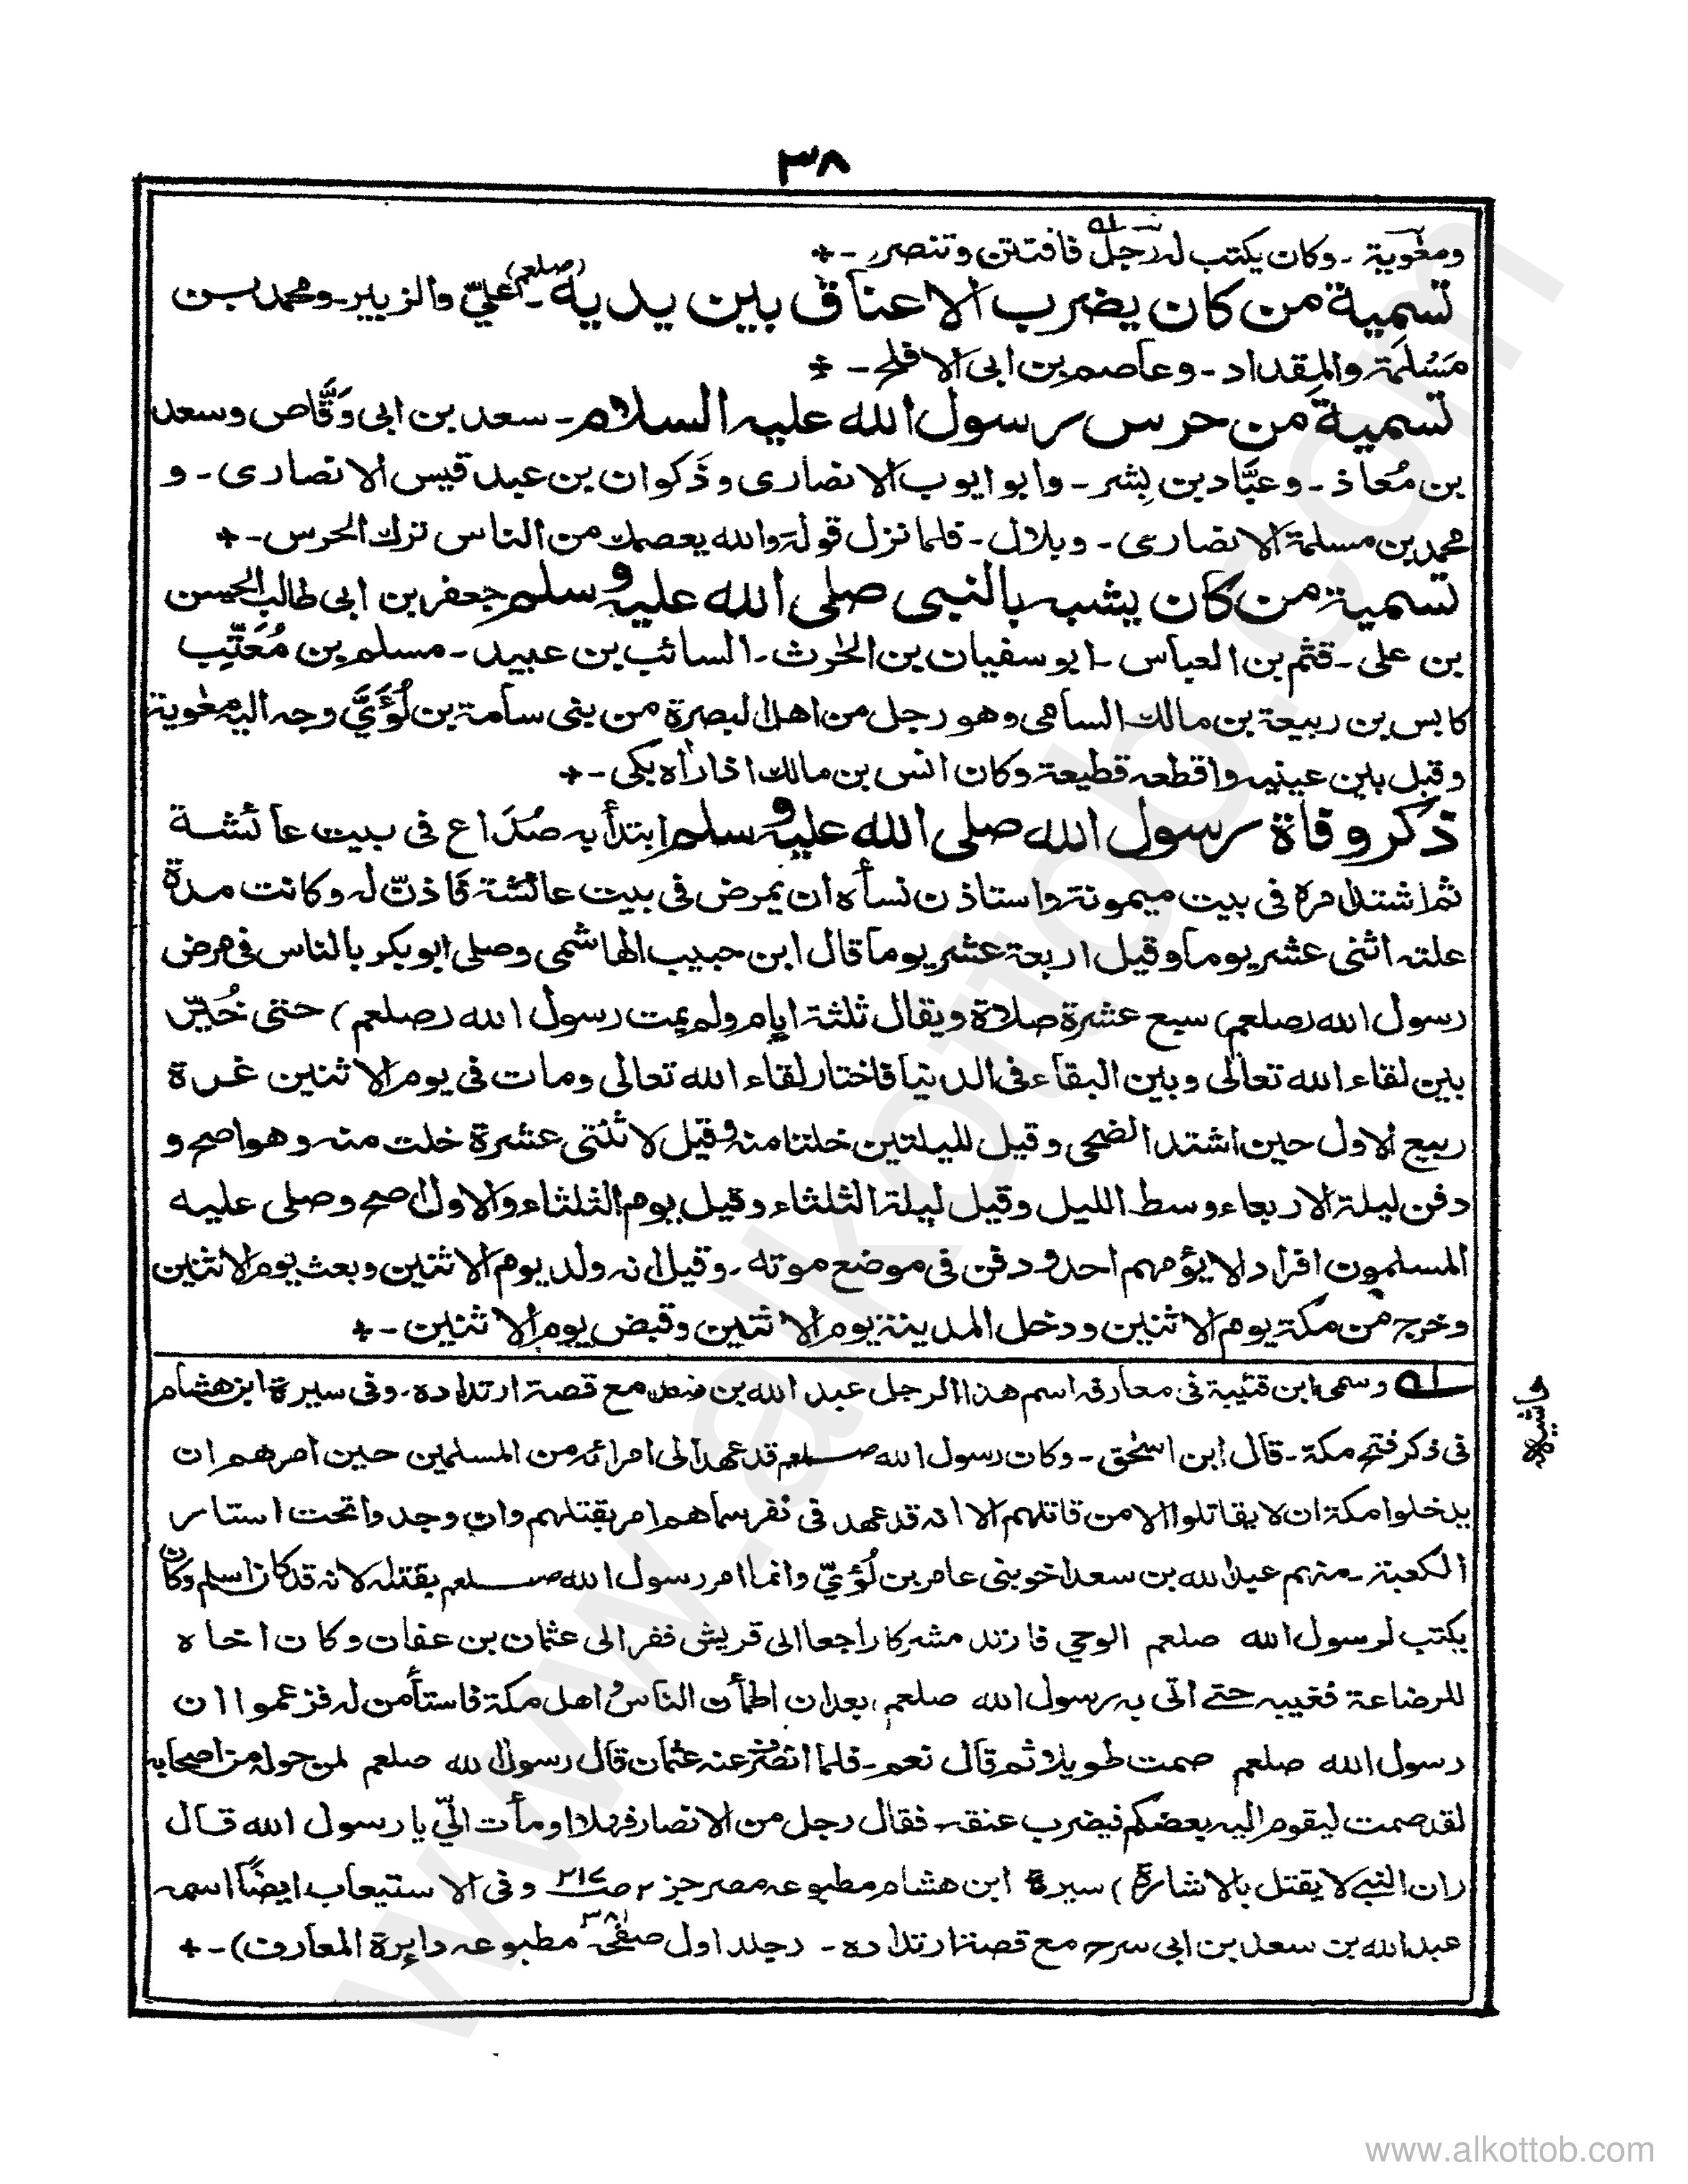 ٣٨
ومعٰوية - وكان يكتب له رجل فافتتن وتنصر - ٭
تسمية من كان يضرب الاعناق بين يديه (صلعم) - عليّ والزبير - ومحمد بن
مَسْلَمة والمِقداد - وعاصم بن ابى الاقلح - ٭
تسمية من حرس رسول الله عليه السلام - سعد بن ابى وَقَّاص وسعد
بن مُعاذ - وعبَّاد بن بِشر - وابو ايوب الانصارى وذَكوان بن عبد قيس الانصارى - و
محمد بن مسلمة الانصارى - وبلال - فلما نزل قوله والله يعصمك من الناس ترك الحرس - ٭
تسمية من كان يشبه بالنبى صلى الله عليه وسلم جعفر بن ابى طالب الحسن
بن على - قثم بن العباس - ابو سفيان بن الحٰرث - السائب بن عبيد - مسلم بن مُعَتِّب
كابس بن ربيعة بن مالك السامى وهو رجل من اهل البصرة من بنى سامة بن لُؤَيَّ وجه اليه معٰوية
وقبل بين عينيه واقطعه قطيعة وكان انس بن مالك اذا رأه بكى - ٭
ذكر وفاة رسول الله صلى الله عليه وسلم ابتدأ به صُدَاع فى بيت عائشة
ثم اشتد امره فى بيت ميمونة واستاذن نسأه ان يمرض فى بيت عائشة فاذنّ له وكانت مدة
علته اثنى عشر يوما وقيل اربعة عشر يوما قال ابن حبيب الهاشمى وصلى ابو بكر بالناس فى مرض
رسول الله (صلعم) سبع عشرة صلاة ويقال ثلثة ايام ولم يمت رسول الله (صلعم) حتى خُيّر
بين لقاء الله تعالى وبين البقاء فى الدنيا فاختار لقاء الله تعالى ومات فى يوم الاثنين غرة
ربيع الاول حين اشتد الضحى وقيل لليلتين خلتا منه وقيل لاثنتى عشرة خلت منه وهو اصح و
دفن ليلة الاربعاء وسط الليل وقيل ليلة الثلثاء وقيل يوم الثلثاء والاول اصح وصلى عليه
المسلمون افرادا لا يؤمهم احد ودفن فى موضع موته - وقيل انه ولد يوم الاثنين وبعث يوم الاثنين
وخرج من مكة يوم الاثنين ودخل المدينة يوم الاثنين وقبض يوم الاثنين - ٭
حاشية
له وسمى ابن قتيبة فى معارفه اسم هذا الرجل عبد الله بن مع قصة ارتداده - وفى سيرة ابن هشام
فى ذكر فتح مكة - قال ابن اسحٰق - وكان رسول الله صلعم قد عهد الى امرائه من المسلمين حين امرهم ان
يدخلوا مكة ان لا يقاتلوا الا من قاتلهم الا انه قد عهد فى نفر سماهم امر بقتلهم وان وجدوا تحت استار
الكعبة - منهم عبد الله بن سعد اخو بنى عامر بن لُؤيّ وانما امر رسول الله صلعم بقتله لانه قد كان اسلم وكان
يكتب لرسول الله صلعم الوحي فارتد مشركا راجعا الى قريش ففر الى عثمان بن عفان وكان اخاه
للرضاعة فغيبه حتى اتى به رسول الله صلعم بعد ان اطمأن الناسُ اهل مكة فاستأمن له فزعموا ان
رسول الله صلعم صمت طويلا ثم قال نعم - فلما انصرف عنه عثمان قال رسول الله صلعم لمن حوله من اصحابه
لقد صمت ليقوم اليه بعضكم فيضرب عنقه - فقال رجل من الانصار فهلا اومأت اليّ يا رسول الله قال
(ان النبى لا يقتل بالاشارة) سيرة ابن هشام مطبوعه مصر جز ٢ ص ٢١٧ وفى الاستيعاب ايضًا اسمه
عبد الله بن سعد بن ابى سرح مع قصة ارتداده - (جلد اول صفحه ٣٨١ مطبوعه دايرة المعارف) - ٭
www.alkottob.com
www.alkottob.com